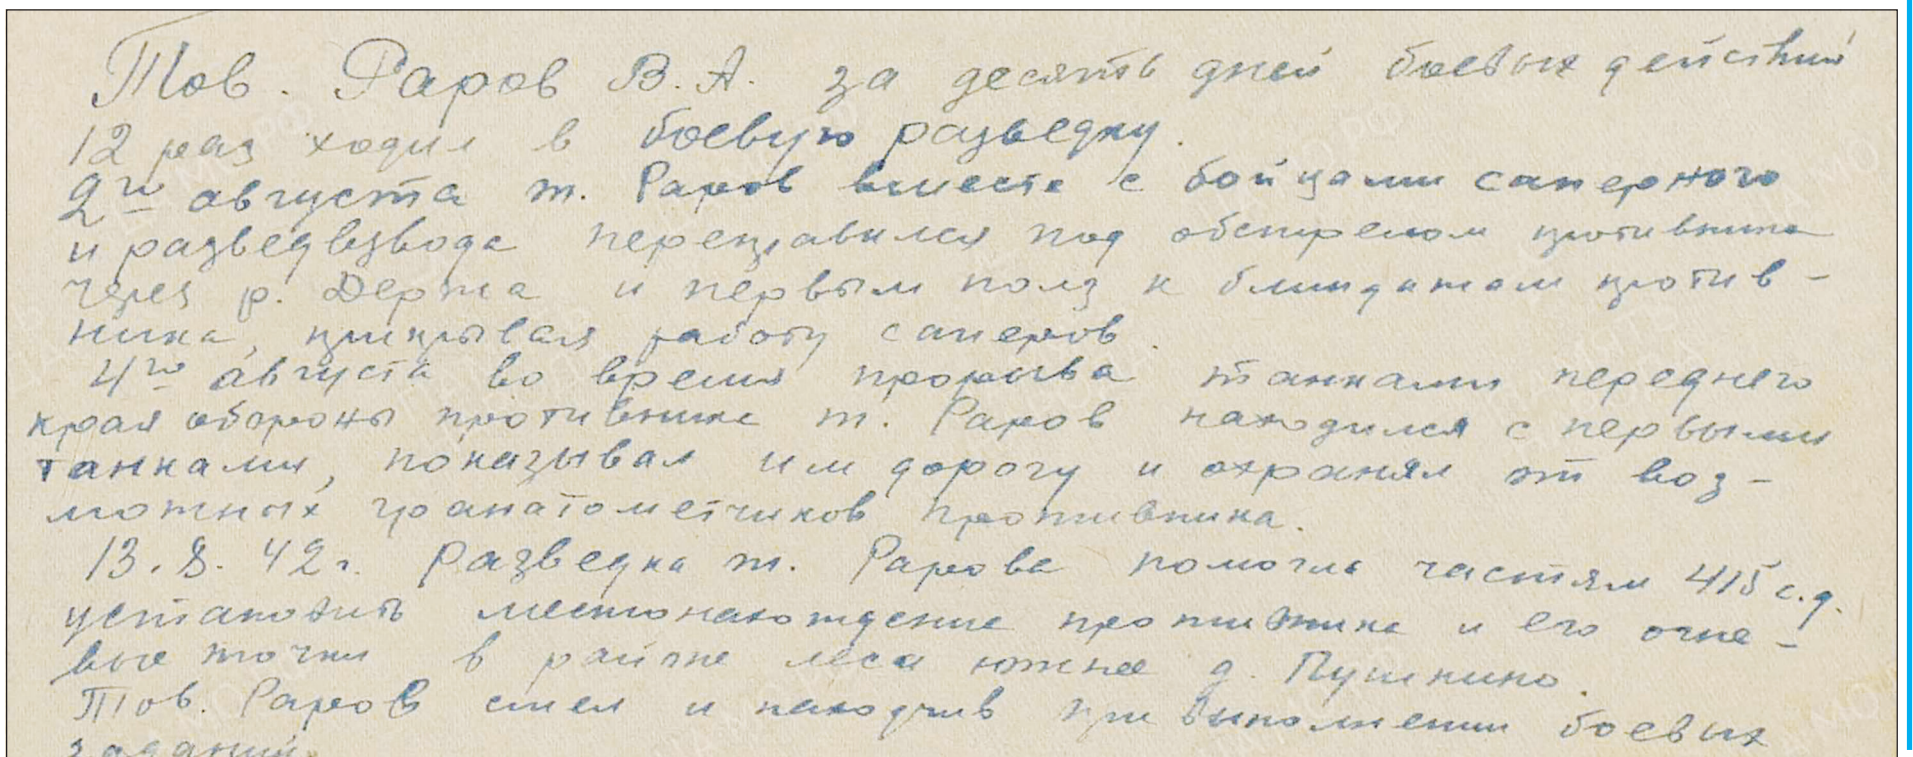 Тов. Раров В.А. за десять дней боевых действий
12 раз ходил в боевую разведку.
2го августа т. Раров вместе с бойцами саперного
и разведвзвода переправился под обстрелом противника
через р. Держа и первым полз к блиндажам против-
ника, прикрывая работу саперов.
4го августа во время прорыва танками переднего
края обороны противника т. Раров находился с первыми
танками, показывал им дорогу и охранял от воз-
можных гранатометчиков противника.
13.8.42г. Разведка т. Рарова помогла частям 415 с.д.
установить местонахождение противника и его огне-
вые точки в районе леса южнее д. Пушкино.
Тов. Раров смел и находчив при выполнении боевых
заданий.